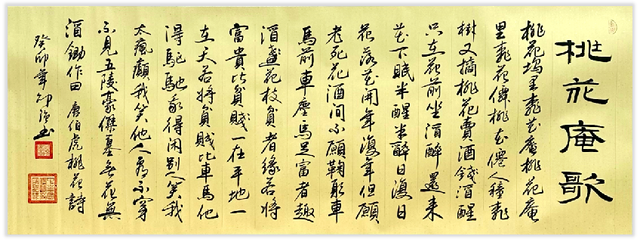 桃花庵歌
桃花塢里桃花庵桃花庵
里桃花僊桃花僊人種桃
樹又摘桃花賣酒錢酒醒
只在花前坐酒醉還来
花下眠半醒半醉日復日
花落花開年復年但願
老死花酒間不願鞠躬車
馬前車塵馬足富者趣
酒盞花枝貧者緣若將
富貴比貧賤一在平地一
在天若將貧賤比車馬他
得馳驅我得閑別人笑我
太瘋癲我笑他人看不穿
不見五陵豪傑墓無花無
酒鋤作田 唐伯虎桃花詩
癸卯年